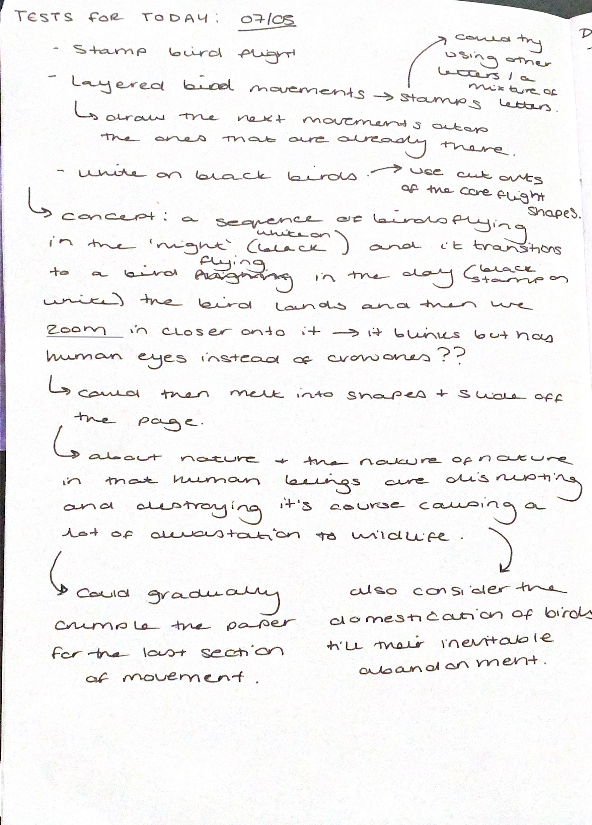 TESTS FOR TODAY: 07/05
- Stamp bird flight
- Layered bird movements → stamps
could try
using other
letters / a
mixture of
letters.
↳ draw the next movements atop
the ones that are already there.
- white on black birds. → use cut outs
of the core flight
shapes.
↳ concept: a sequence of birds flying
in the 'night' (white on black) and it transitions
to a bird flying in the day (black stamp on
white) the bird lands and then we
zoom in closer onto it → it blinks but has
human eyes instead of crow ones??
↳ could then melt into shapes + slide off
the page.
↳ about nature + the nature of nature
in that human beings are disrupting
and destroying it's course causing a
lot of devastation to wildlife.
↳ Could gradually
crumple the paper
for the last section
of movement.
also consider the
domestication of birds
till their inevitable
abandonment.
D